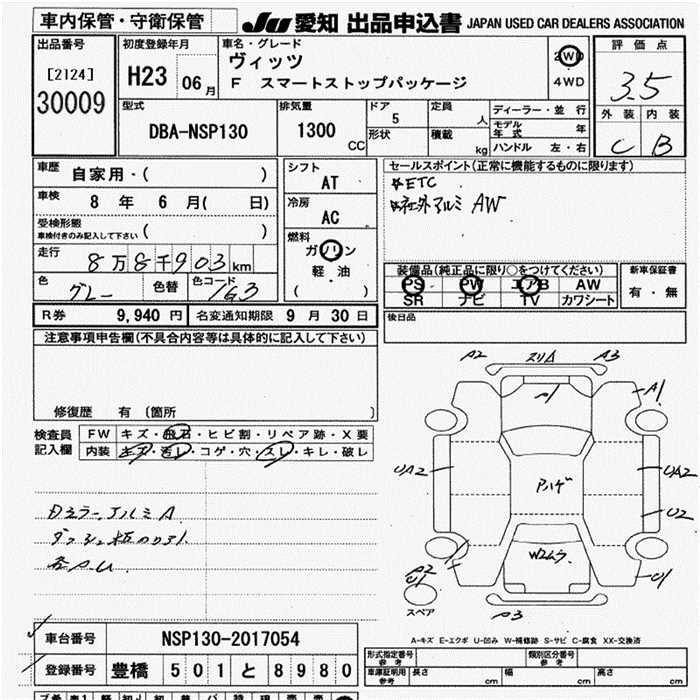 車内保管・守衛保管 JU 愛知 出品申込書 JAPAN USED CAR DEALERS ASSOCIATION
出品番号
[2124]
30009
初度登録年月
H23 06月
車名・グレード
ヴィッツ
F スマートストップパッケージ
2WD
4WD
評価点
3.5
外装 内装
C B
型式
DBA-NSP130
排気量
1300
CC
ドア
5
形状
定員
人
積載
kg
ディーラー・並行
モデル年式 年
ハンドル 左・右
車歴
自家用・( )
車検
8 年 6 月( 日)
受検形態
車検付きのみ記入して下さい ( )
走行
8万8千903km
色
グレー
色替
色コード
1G3
シフト
AT
冷房
AC
燃料
ガソリン
軽・油
( )
セールスポイント(正常に機能するものに限ります)
☆ETC
社外アルミ AW
装備品(純正品に限り○をつけてください)
PS PW エアB AW
SR ナビ TV カワシート
新車保証書
有・無
後日品
R券 9,940 円 名変通知期限 9 月 30 日
注意事項申告欄(不具合内容等は具体的に記入して下さい)
修復歴 有 〔箇所 〕
検査員記入欄
FW キズ・飛石・ヒビ割・リペア跡・X要
内装 キズ・汚レ・コゲ・穴・スレ・キレ・破レ
Dミラー アルミ A
各A.U
A2 スリA A3
A1
UA2 UA2
U2
Aハゲ
Wスムラ
A2
U1
U1
A3
スペア
A-キズ E-エクボ U-凹み W-補修跡 S-サビ C-腐食 XX-交換済
車台番号 NSP130-2017054
登録番号 豊橋 501 と 8980
形式指定番号 参考
類別区分番号 参考
車庫証明用 参考 長さ cm 幅 cm 高さ cm